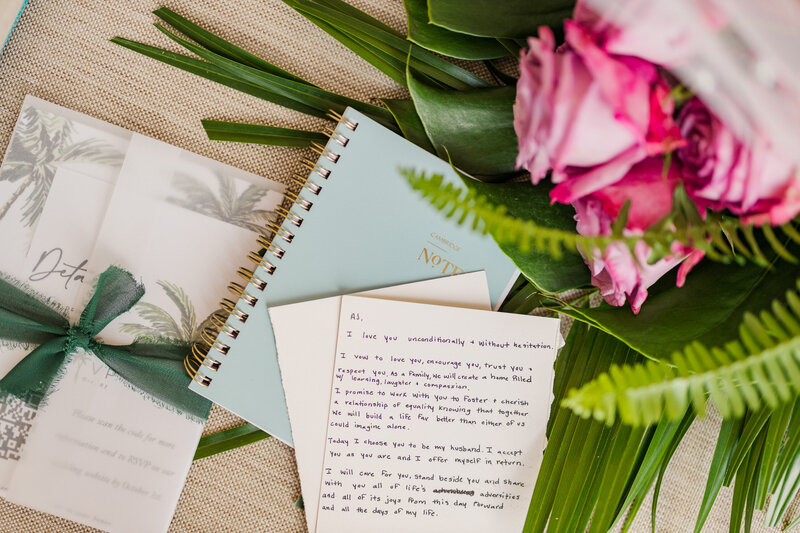 Deta
Please scan the code for more
information and to RSVP on our
wedding website by October
CAMBRIDGE
NOTE
AJ,
I love you unconditionally + without hesitation.
I vow to love you, encourage you, trust you +
respect you. As a family, we will create a home filled
w/ learning, laughter + compassion.
I promise to work with you to foster + cherish
a relationship of equality knowing that together
we will build a life far better than either of us
could imagine alone.
Today I choose you to be my husband. I accept
you as you are and I offer myself in return.
I will care for you, stand beside you and share
with you all of life's adversities
and all of its joys from this day forward
and all the days of my life.